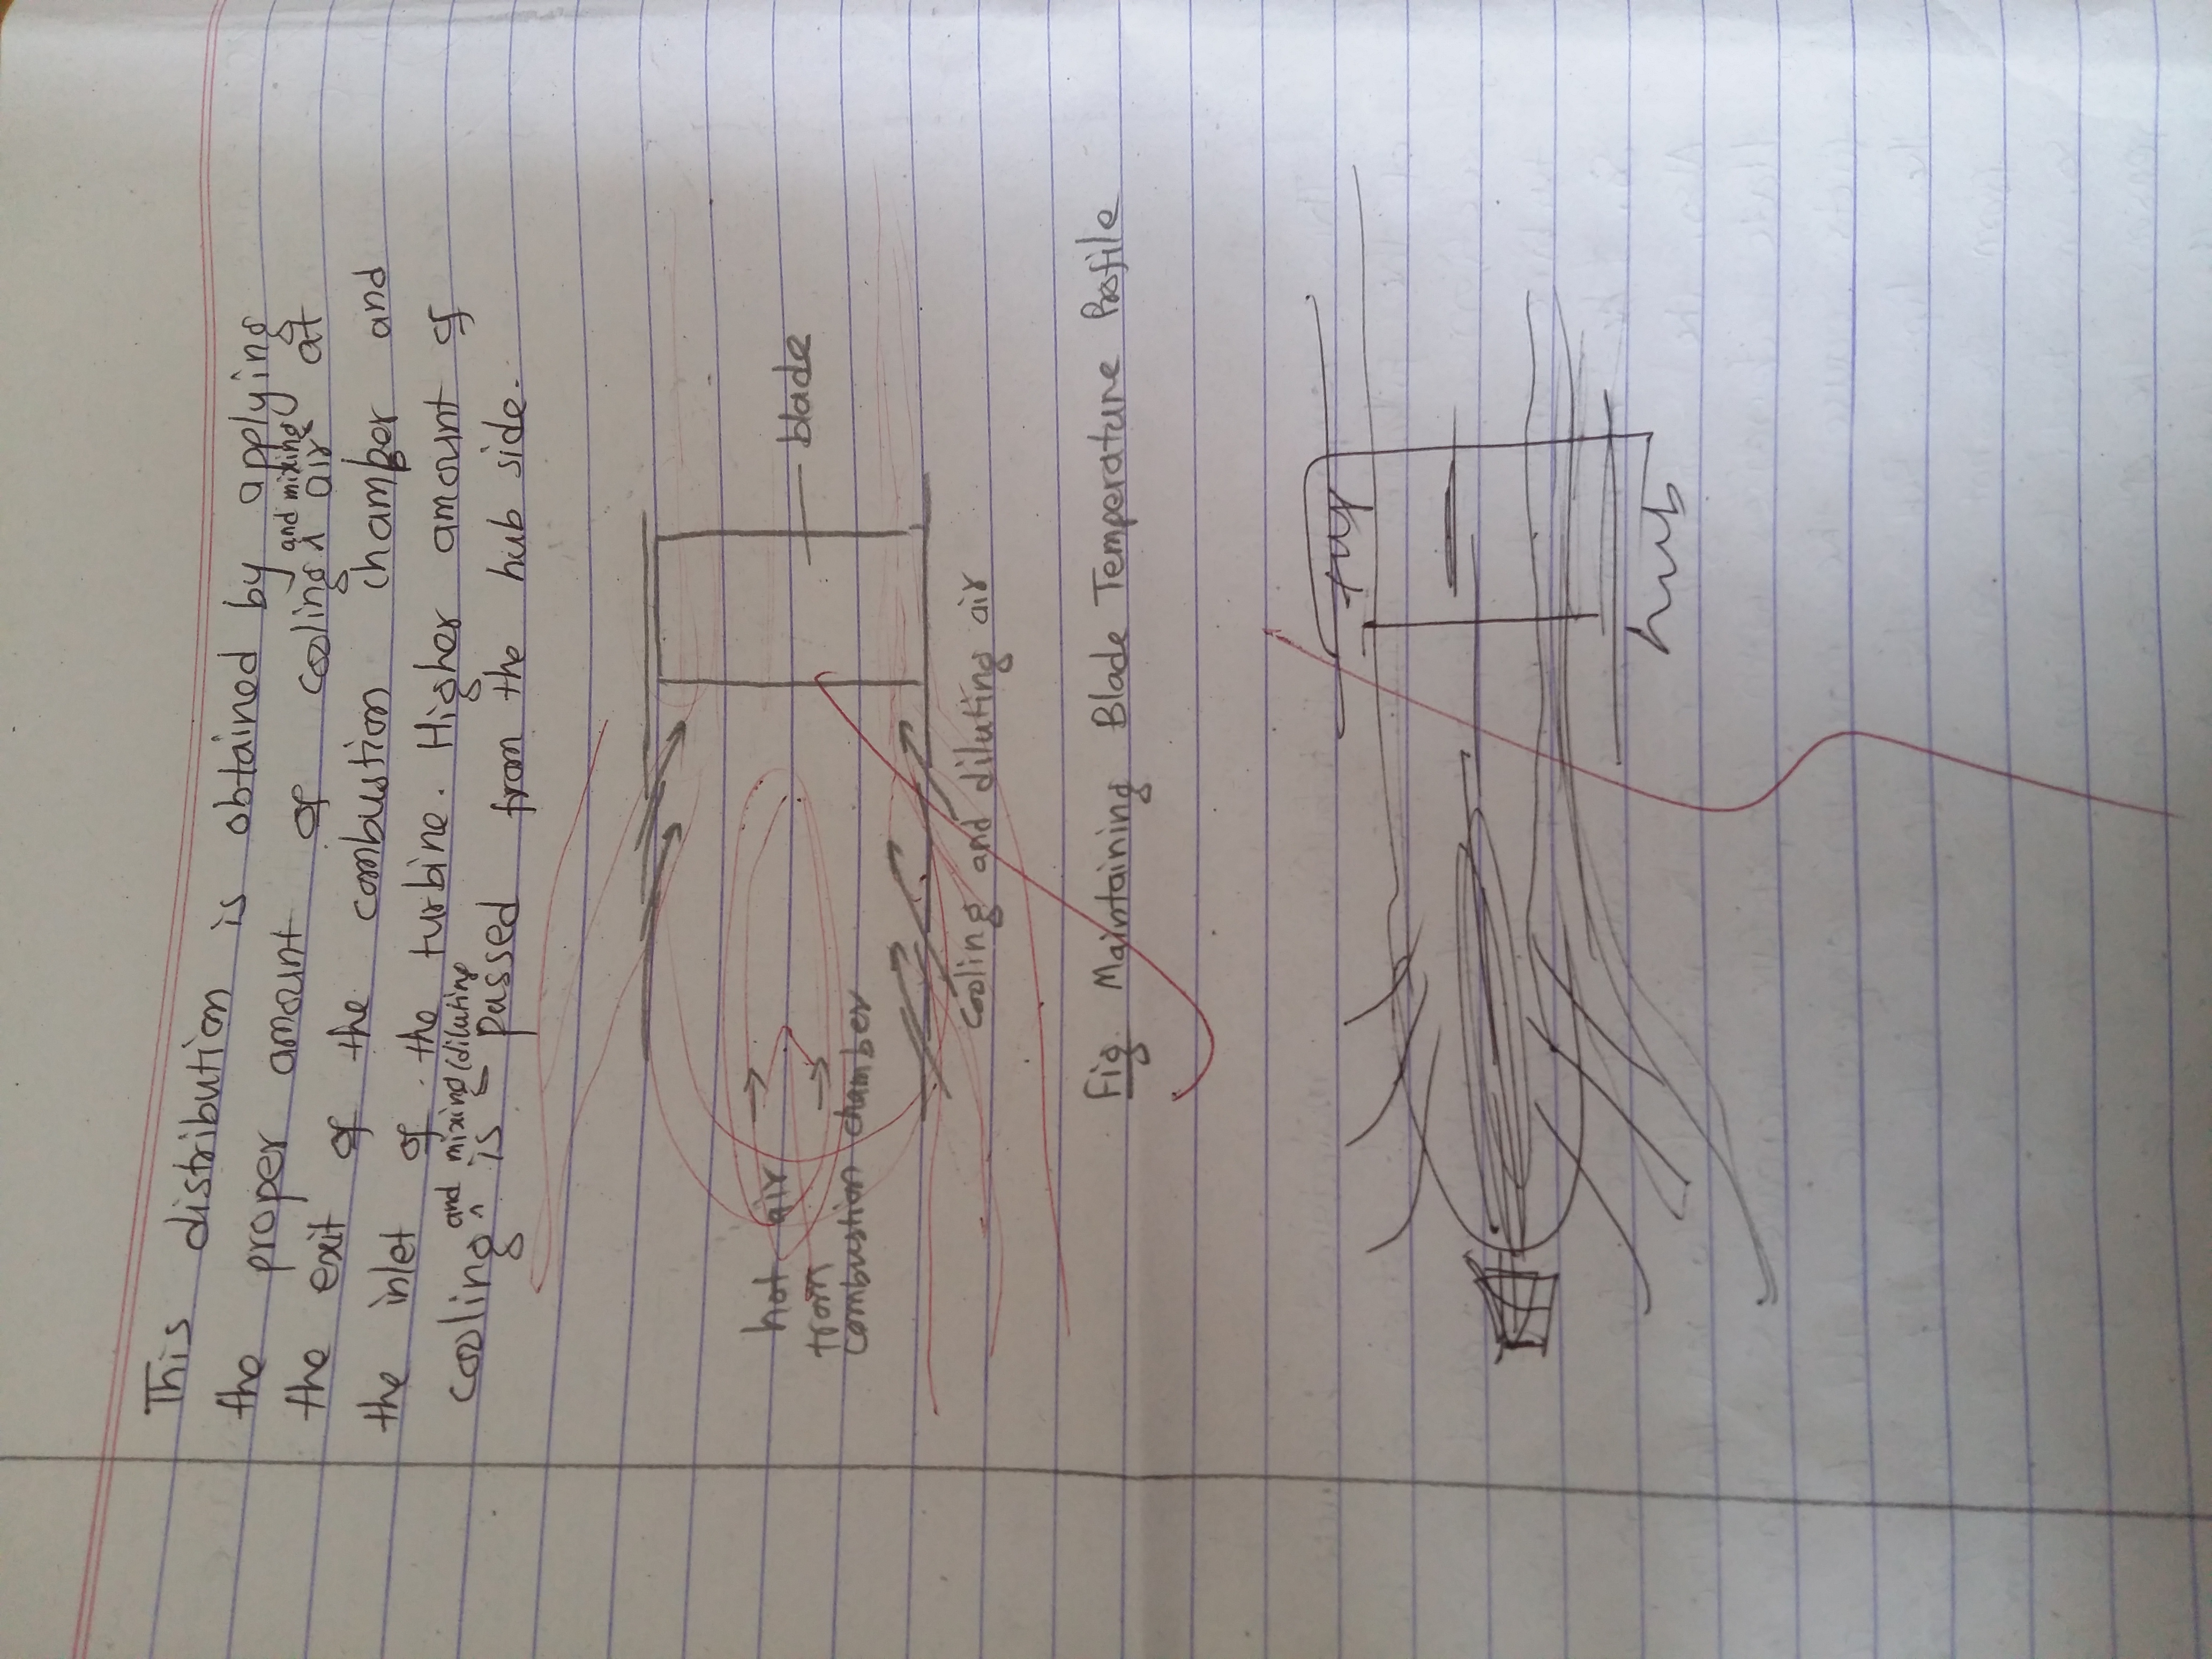 This distribution is obtained by applying
the proper amount of cooling and mixing air at
the exit of the combustion chamber and
the inlet of the turbine. Higher amount of
cooling and mixing/diluting is passed from the hub side.
blade
hot air
from
combustion chamber
cooling and diluting air
Fig. Maintaining Blade Temperature Profile
hub